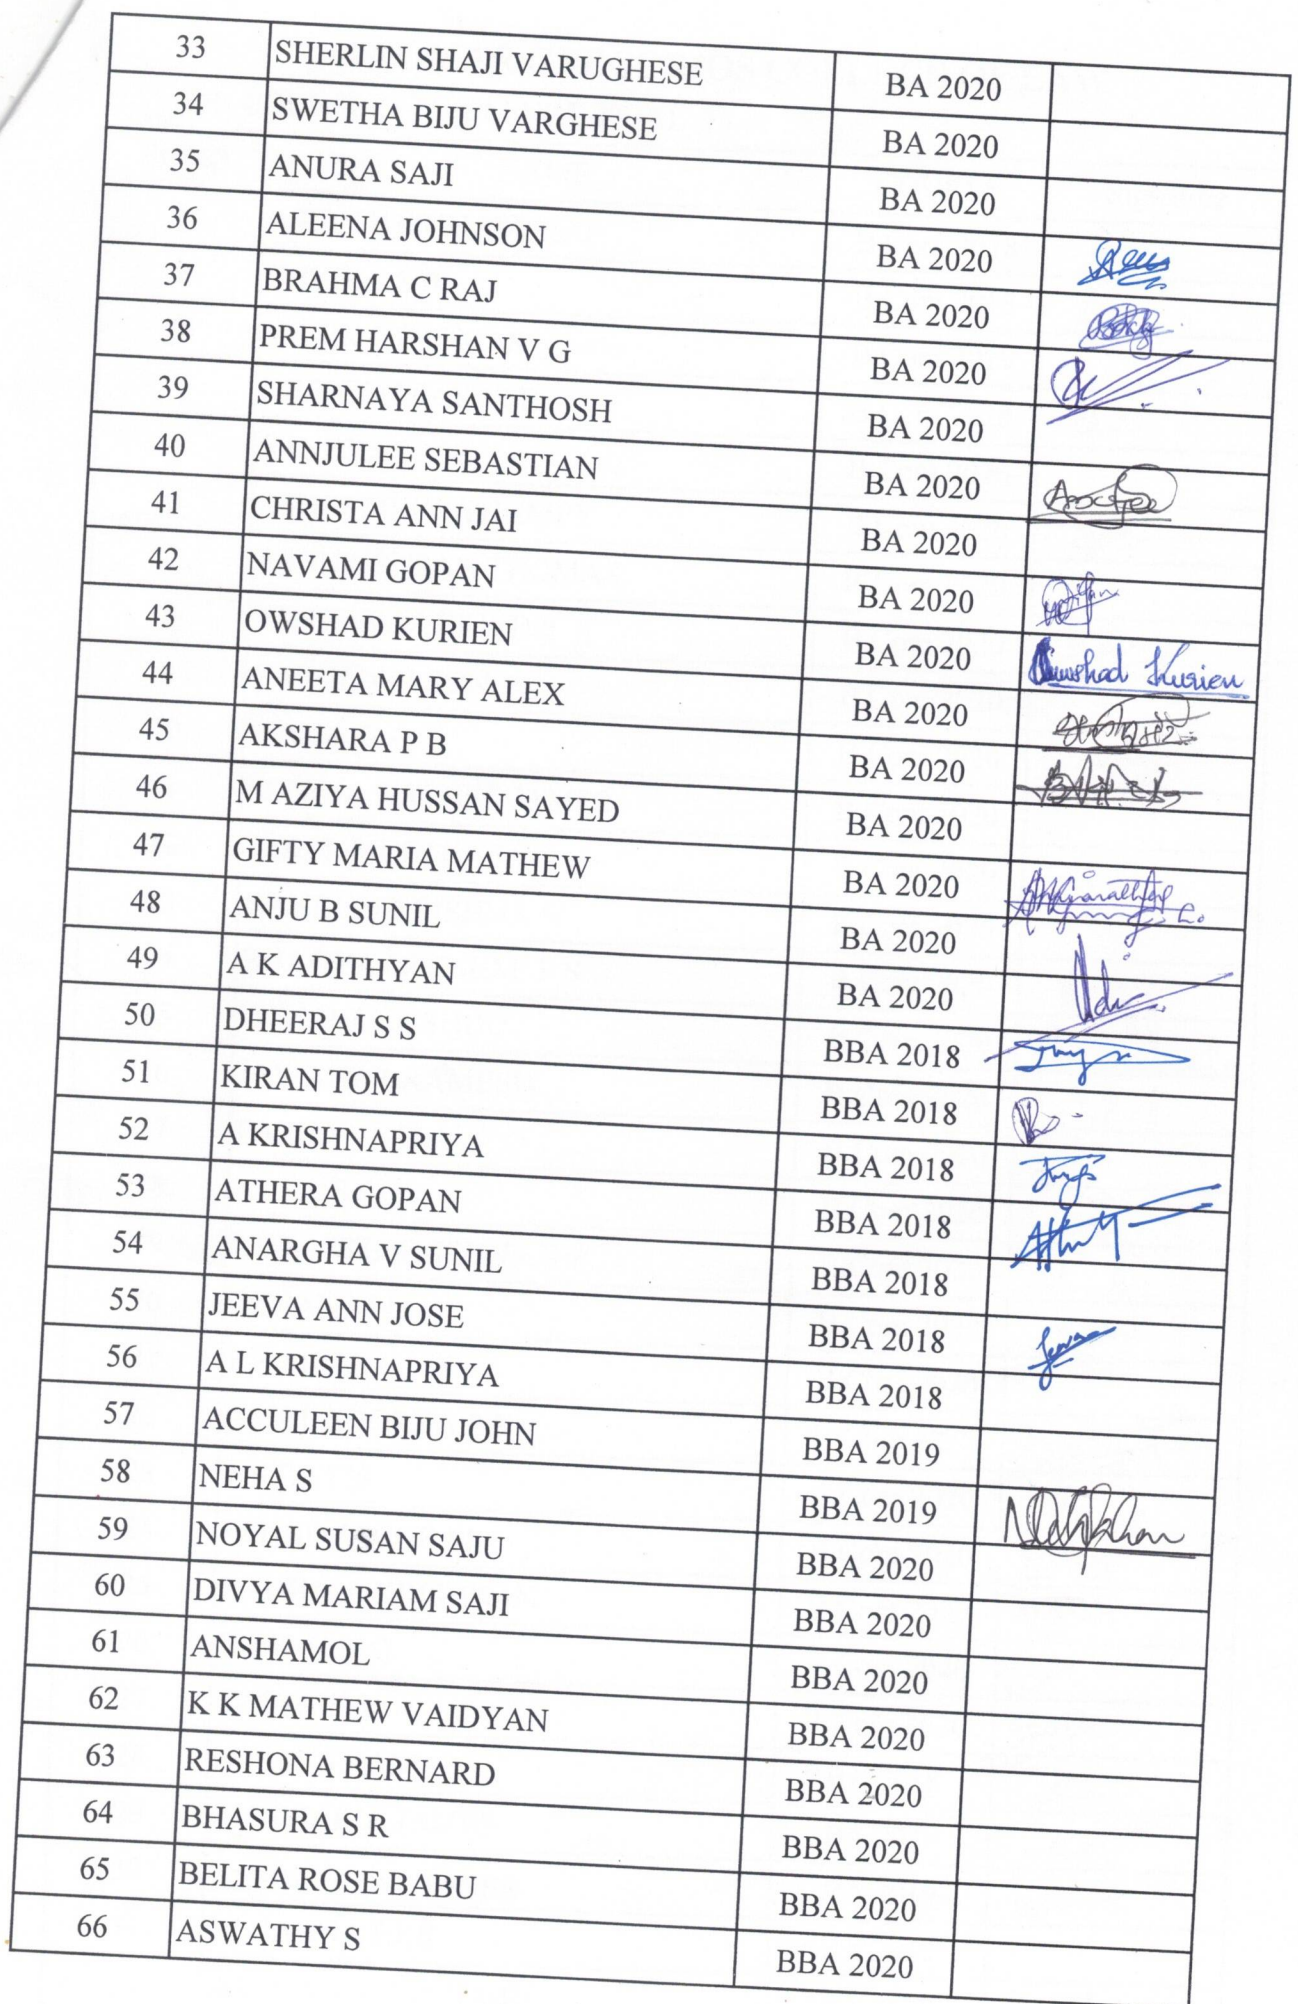 33 SHERLIN SHAJI VARUGHESE BA 2020
34 SWETHA BIJU VARGHESE BA 2020
35 ANURA SAJI BA 2020
36 ALEENA JOHNSON BA 2020
37 BRAHMA C RAJ BA 2020
38 PREM HARSHAN V G BA 2020
39 SHARNAYA SANTHOSH BA 2020
40 ANNJULEE SEBASTIAN BA 2020
41 CHRISTA ANN JAI BA 2020
42 NAVAMI GOPAN BA 2020
43 OWSHAD KURIEN BA 2020 Kurien
44 ANEETA MARY ALEX BA 2020
45 AKSHARA P B BA 2020
46 M AZIYA HUSSAN SAYED BA 2020
47 GIFTY MARIA MATHEW BA 2020
48 ANJU B SUNIL BA 2020
49 A K ADITHYAN BA 2020
50 DHEERAJ S S BBA 2018
51 KIRAN TOM BBA 2018
52 A KRISHNAPRIYA BBA 2018
53 ATHERA GOPAN BBA 2018
54 ANARGHA V SUNIL BBA 2018
55 JEEVA ANN JOSE BBA 2018
56 A L KRISHNAPRIYA BBA 2018
57 ACCULEEN BIJU JOHN BBA 2019
58 NEHA S BBA 2019
59 NOYAL SUSAN SAJU BBA 2020
60 DIVYA MARIAM SAJI BBA 2020
61 ANSHAMOL BBA 2020
62 K K MATHEW VAIDYAN BBA 2020
63 RESHONA BERNARD BBA 2020
64 BHASURA S R BBA 2020
65 BELITA ROSE BABU BBA 2020
66 ASWATHY S BBA 2020